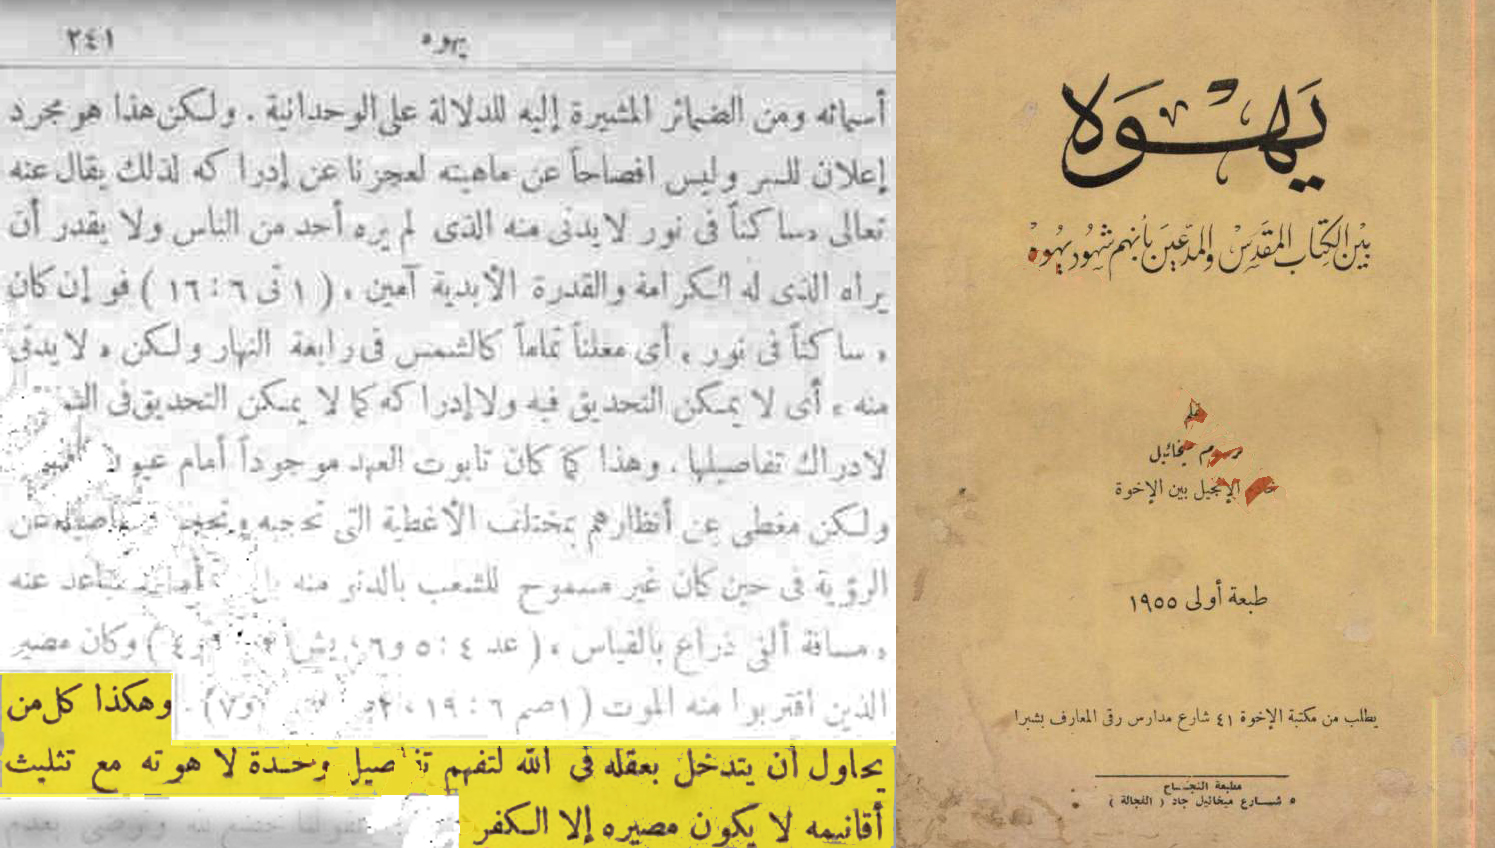 ٢٤١
يهوه
أسمائه ومن الضمائر المشيرة إليه للدلالة على الوحدانية . ولكن هذا هو مجرد
إعلان للسر وليس افصاحاً عن ماهيته لعجزنا عن إدراكه لذلك يقال عنه
تعالى «ساكناً فى نور لا يدنى منه الذى لم يره أحد من الناس ولا يقدر أن
يراه الذى له الكرامة والقدرة الأبدية آمين » ( ١ تى ٦ : ١٦ ) فهو إن كان
« ساكناً فى نور » أى معلناً تماماً كالشمس فى رابعة النهار ولكن « لا يدنى
منه » أى لا يمكن التحديق فيه ولا إدراكه كما لا يمكن التحديق فى
لادراك تفاصيلها . وهذا كما كان تابوت العهد موجوداً أمام عيون
ولكن مغطى عن أنظارهم بمختلف الأغطية التى تحجبه وتحجب تفاصيله عن
الرؤية فى حين كان غير مسموح للشعب بالدنو منه عنه
« مسافة ألفى ذراع بالقياس » ( عد ٤ : ٥ و ٦ و ٤ ) وكان مصير
الذين اقتربوا منه الموت ( ١ صم ٦ : ١٩ ، ٢ و ٧ ) . وهكذا كل من
يحاول أن يتدخل بعقله فى الله لتفهم تفاصيل وحدة لاهوته مع تثليث
أقانيمه لا يكون مصيره إلا الكفر
يَهْوَه
بَيْن الكِتَاب المقَدِسْ والمدّعين بأنهم شهُود يهُوه
بقلم
مرسوم ميخائيل
خادم الإنجيل بين الإخوة
طبعة أولى ١٩٥٥
يطلب من مكتبة الإخوة ٤١ شارع مدارس رقى المعارف بشبرا
مطبعة النجـــاح
٥ شـــارع ميخائيل جاد ( الفجالة )